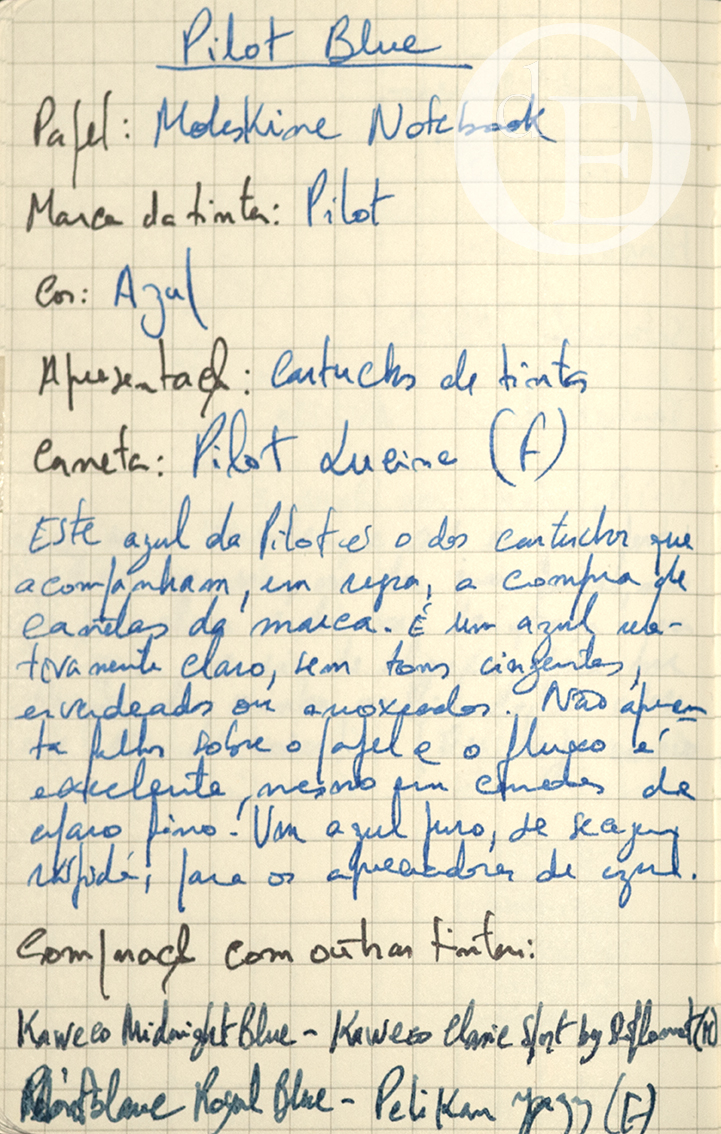 Pilot Blue
Papel: Moleskine Notebook
Marca da tinta: Pilot
Cor: Azul
Apresentação: Cartuchos de tinta
Caneta: Pilot Lucina (F)
Este azul da Pilot é o dos cartuchos que
acompanham, em regra, a compra de
canetas da marca. É um azul rela-
tivamente claro, sem tons cinzentos,
esverdeados ou arroxeados. Não apresen
ta falhas sobre o papel e o fluxo é
excelente, mesmo em canetas de
aparo fino. Um azul puro, de secagem
rápida, para os apreciadores de azul.
Comparação com outras tintas:
Kaweco Midnight Blue - Kaweco Classic Sport by Diplomat (M)
Montblanc Royal Blue - Pelikan (F)
dE